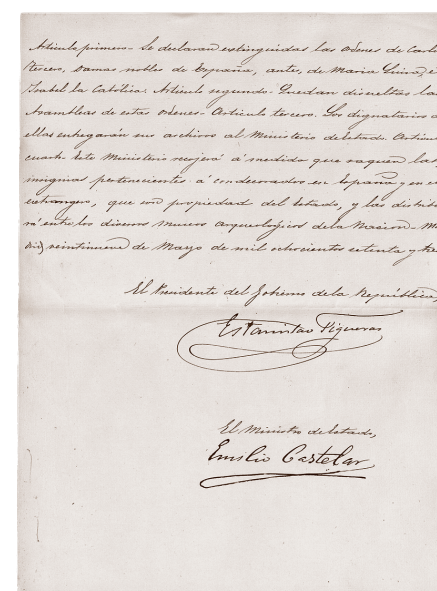 Artículo primero- Se declaran extinguidas las ordenes de Carlo
tercero, Damas nobles de España, antes, de Maria Luisa, e
Isabel la Católica. Artículo segundo. Quedan disueltas la
Asambleas de estas ordenes- Artículo tercero. Los dignatarios d
ellas entregarán sus archivos al Ministerio de Estado. Artícu
cuarto- Este Ministerio recojerá á medida que vaquen las
insignias pertenecientes á condecorados en España y en e
extrangero, que son propiedad del Estado, y las distrib
rá entre los diversos museos arqueológicos de la Nacion- Ma
drid veintinueve de Marzo de mil ochocientos setenta y tre
El Presidente del Gobierno de la República
Estanislao Figueras
El Ministro de Estado,
Emilio Castelar